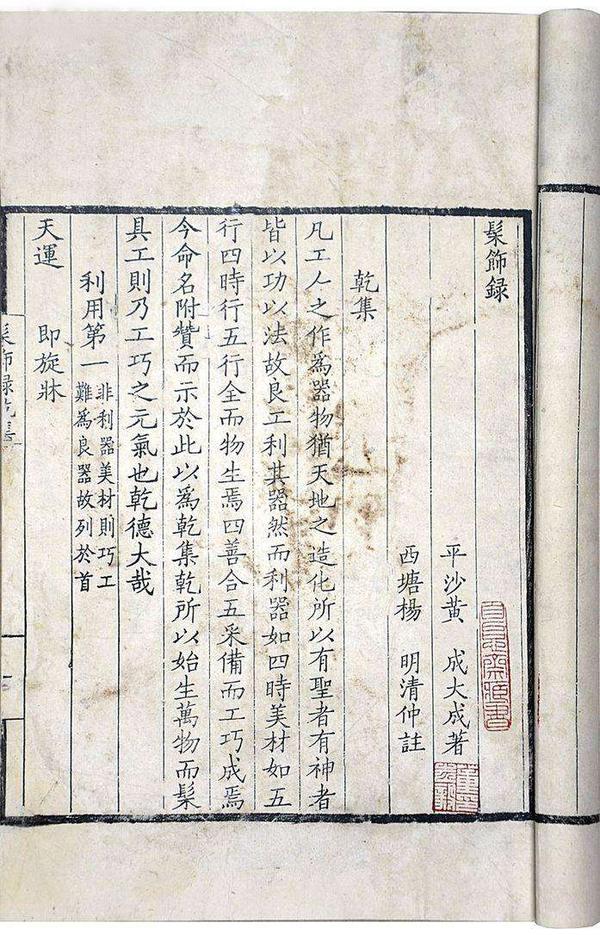 髹飾録
平沙黃　成大成著
西塘楊　明清仲註
乾集
凡工人之作為器物猶天地之造化所以有聖者有神者
皆以功以法故良工利其器然而利器如四時美材如五
行四時行五行全而物生焉四善合五采備而工巧成焉
今命名附贊而示於此以為乾集乾所以始生萬物而髹
具工則乃工巧之元氣也乾德大哉
利用第一
非利器美材則巧工
難為良器故列於首
天運　即旋牀
髹飾録乾集